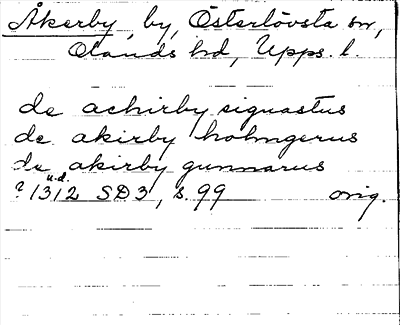 Åkerby, by, Österlövsta sn,
Olands hd, Upps. l.
de achirby siguastus
de akirby holmgerus
de akirby gunnarus
u.d.
? 1312 SD3, s. 99 orig.